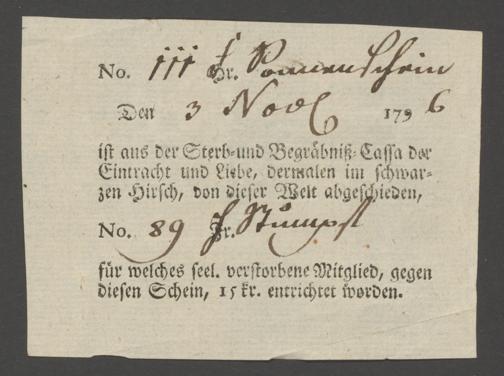 No. 111 Fr. Sonnenschein
Den 3 Nov 1796
ist aus der Sterb-und Begräbniß-Cassa der
Eintracht und Liebe, dermalen im schwar-
zen Hirsch, von dieser Welt abgeschieden,
No. 89 Fr. Stumpf
für welches seel. verstorbene Mitglied, gegen
diesen Schein, 15 kr. entrichtet worden.